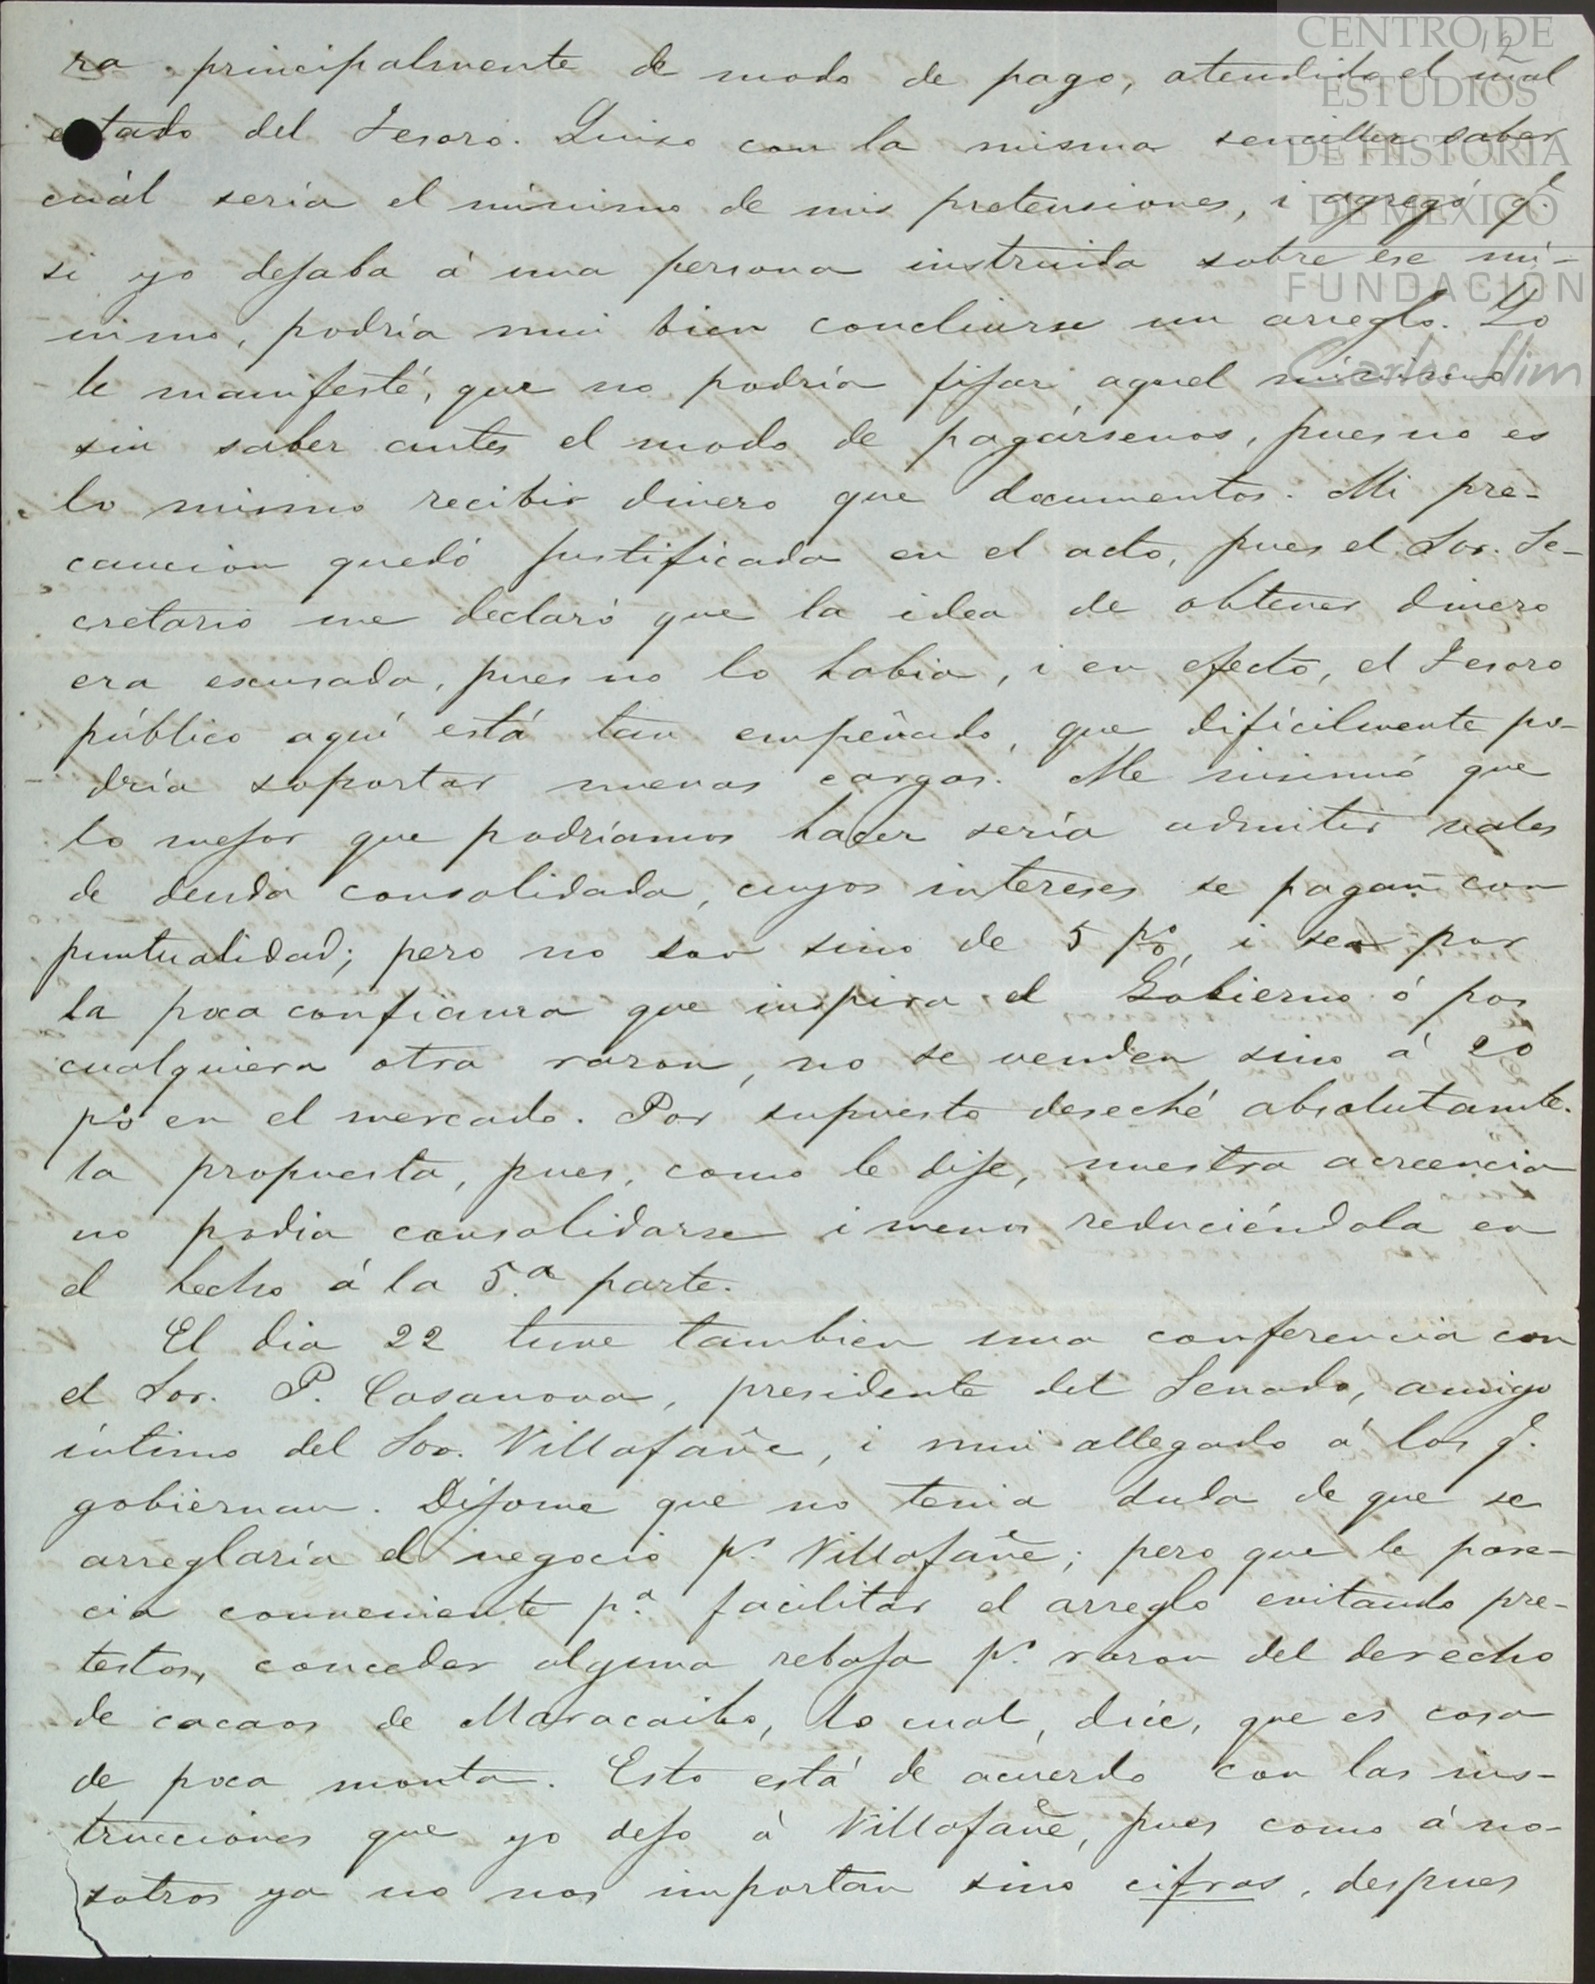 12
ra principalmente de modo de pago, atendido el mal
estado del Tesoro. Quiso con la misma sencillez saber
cuál sería el mínimo de mis pretensiones, i agregó q.e
si yo dejaba á una persona instruida sobre ese mí-
nimo, podría mui bien concluirse un arreglo. Yo
le manifesté, que no podría fijar aquel mínimo
sin saber antes el modo de pagársenos, pues no es
lo mismo recibir dinero que documentos. Mi pre-
caucion quedó justificada en el acto, pues el Sor. Se-
cretario me declaró que la idea de obtener dinero
era escusada, pues no lo habia, i en efecto, el Tesoro
público aquí está tan empeñado, que difícilmente po-
dría soportar nuevas cargas. Me insinuó que
lo mejor que podríamos hacer sería admitir vales
de deuda consolidada, cuyos intereses se pagan con
puntualidad; pero no son sino de 5 p%, i sea por
la poca confianza que inspira el Gobierno ó por
cualquiera otra razon, no se venden sino á 20
p% en el mercado. Por supuesto deseché absolutamte.
la propuesta, pues, como le dije, nuestra acreencia
no podia consolidarse i menos reduciéndola en
el hecho á la 5.a parte.
El dia 22 tuve tambien una conferencia con
el Sor. P. Casanova, presidente del Senado, amigo
íntimo del Sor. Villafañe, i mui allegado á los q.e
gobiernan. Díjome que no tenia duda de que se
arreglaría el negocio p.r Villafañe; pero que le pare-
cia conveniente p.a facilitar el arreglo evitando pre-
testos, conceder alguna rebaja p.r razon del derecho
de cacaos de Maracaibo, lo cual, dice, que es cosa
de poca monta. Esto está de acuerdo con las ins-
trucciones que yo dejo á Villafañe, pues como á no-
sotros ya no nos importan sino cifras, despues
CENTRO DE
ESTUDIOS
DE HISTORIA
DE MÉXICO
FUNDACIÓN
Carlos Slim